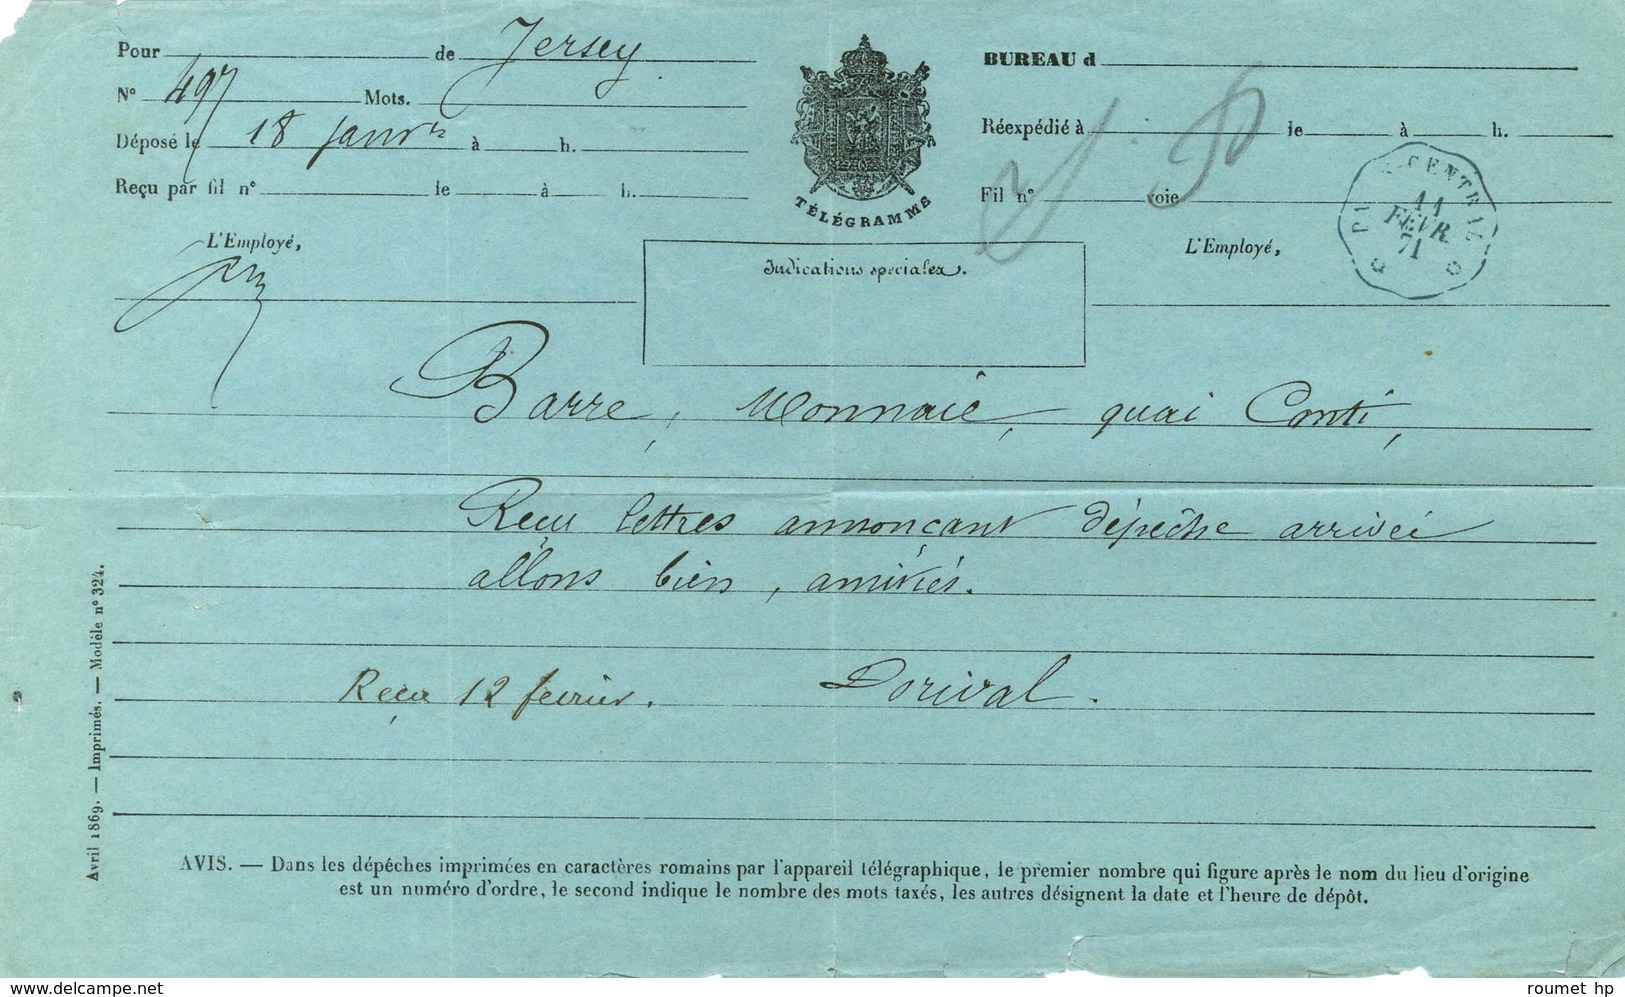 Pour de Jersey
N° 497 Mots.
Déposé le 18 janvr à h.
Reçu par fil n° le à h.
L'Employé,
TÉLÉGRAMME
BUREAU d
Réexpédié à le à h.
Fil n° voie
L'Employé,
CENTRAL
11
FEVR.
71
Indications spéciales.
Barre, Monnaie, quai Conti,
Reçu lettres annonçant dépêche arrivée
allons bien, amitiés.
Reçu 12 février. Dorival.
Avril 1869. — Imprimés. — Modèle n° 324.
AVIS. — Dans les dépêches imprimées en caractères romains par l'appareil télégraphique, le premier nombre qui figure après le nom du lieu d'origine
est un numéro d'ordre, le second indique le nombre des mots taxés, les autres désignent la date et l'heure de dépôt.
www.delcampe.net
roumet hp